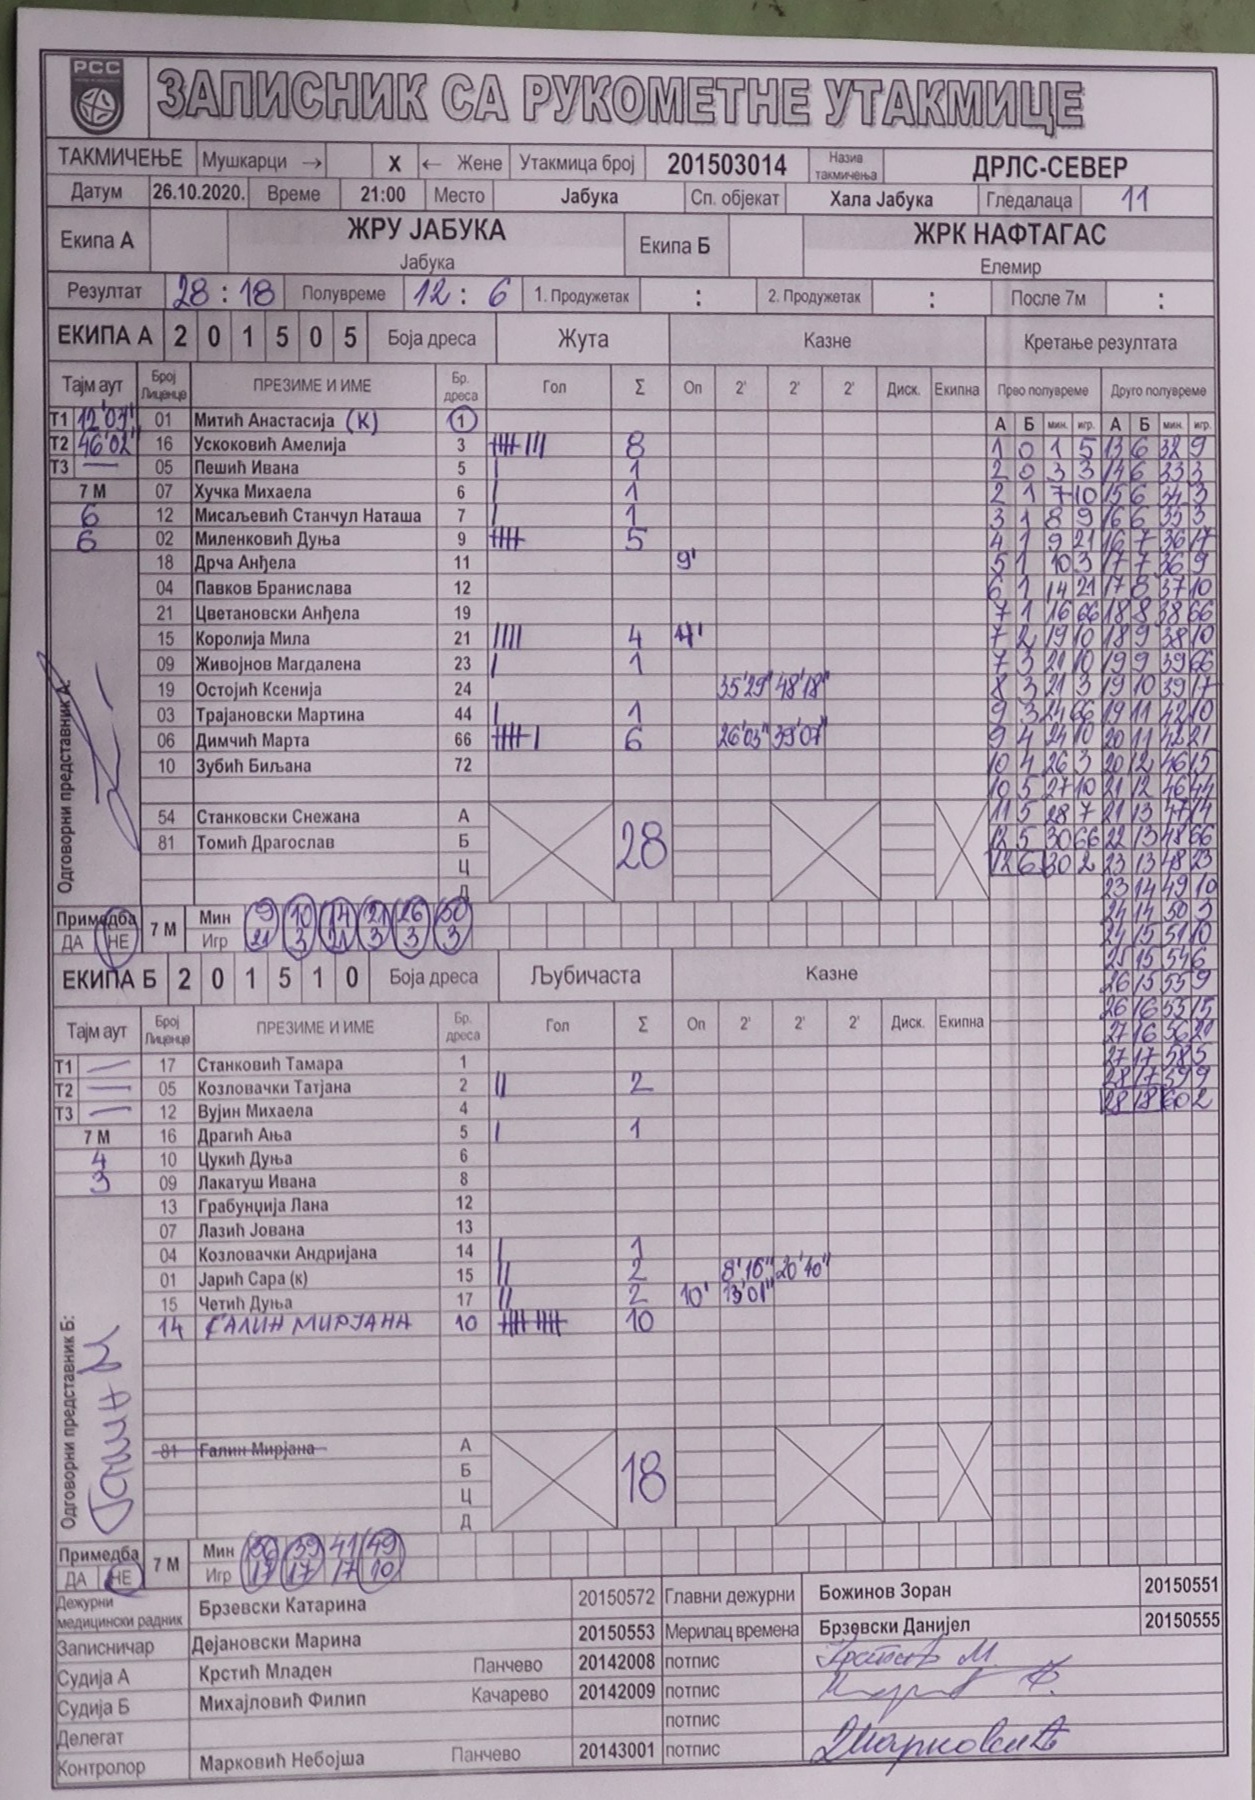 РСС
ЗАПИСНИК СА РУКОМЕТНЕ УТАКМИЦЕ
ТАКМИЧЕЊЕ Мушкарци → X ← Жене Утакмица број 201503014 Назив такмичења ДРЛС-СЕВЕР
Датум 26.10.2020. Време 21:00 Место Јабука Сп. објекат Хала Јабука Гледалаца 11
Екипа А ЖРУ ЈАБУКА Екипа Б ЖРК НАФТАГАС
Јабука Елемир
Резултат 28 : 18 Полувреме 12 : 6 1. Продужетак : 2. Продужетак : После 7м :
ЕКИПА А 2 0 1 5 0 5 Боја дреса Жута Казне Кретање резултата
Тајм аут Број Лиценце ПРЕЗИМЕ И ИМЕ Бр. дреса Гол Σ Оп 2' 2' 2' Диск. Екипна Прво полувреме Друго полувреме
Т1 12'07" 01 Митић Анастасија (К) 1 А Б мин. игр. А Б мин. игр.
Т2 46'02" 16 Ускоковић Амелија 3 8 1 0 1 5 13 6 32 9
Т3 — 05 Пешић Ивана 5 1 2 0 3 3 14 6 33 3
7 М 07 Хучка Михаела 6 1 2 1 7 10 15 6 34 3
6 12 Мисаљевић Станчул Наташа 7 1 3 1 8 9 16 6 35 3
6 02 Миленковић Дуња 9 5 4 1 9 21 16 7 36 17
18 Дрча Анђела 11 9' 5 1 10 3 17 7 36 9
04 Павков Бранислава 12 6 1 14 21 17 8 37 10
21 Цветановски Анђела 19 7 1 16 66 18 8 38 66
15 Королија Мила 21 4 7 2 19 10 18 9 38 10
09 Живојнов Магдалена 23 1 7 3 21 10 19 9 39 66
19 Остојић Ксенија 24 35'29" 48'18" 8 3 21 3 19 10 39 17
03 Трајановски Мартина 44 1 9 3 24 66 19 11 42 10
06 Димчић Марта 66 6 26'03" 39'07" 9 4 24 10 20 11 42 21
10 Зубић Биљана 72 10 4 26 3 20 12 46 15
10 5 27 10 21 12 46 44
54 Станковски Снежана А 28 11 5 28 7 21 13 47 14
81 Томић Драгослав Б 12 5 30 66 22 13 48 66
Ц 12 6 30 2 23 13 48 23
Д 23 14 49 10
Примедба 7 М Мин 9 10 14 21 26 30 24 14 50 3
ДА НЕ Игр 21 3 21 3 3 3 24 15 51 10
ЕКИПА Б 2 0 1 5 1 0 Боја дреса Љубичаста Казне 25 15 54 6
26 15 55 9
Тајм аут Број Лиценце ПРЕЗИМЕ И ИМЕ Бр. дреса Гол Σ Оп 2' 2' 2' Диск. Екипна 26 16 55 15
27 16 56 21
Т1 — 17 Станковић Тамара 1 27 17 58 5
Т2 — 05 Козловачки Татјана 2 2 28 17 59 9
Т3 — 12 Вујин Михаела 4 28 18 60 2
7 М 16 Драгић Ања 5 1
4 10 Цукић Дуња 6
3 09 Лакатуш Ивана 8
13 Грабунџија Лана 12
07 Лазић Јована 13
04 Козловачки Андријана 14 1
01 Јарић Сара (к) 15 2 8'16" 20'40"
15 Четић Дуња 17 2 10' 13'01"
14 ГАЛИН МИРЈАНА 10 10
Одговорни представник А:
Одговорни представник Б:
81 Галин Мирјана А 18
Б
Ц
Д
Примедба 7 М Мин 36 39 41 49
ДА НЕ Игр 17 17 17 10
Дежурни медицински радник Брзевски Катарина 20150572 Главни дежурни Божинов Зоран 20150551
Записничар Дејановски Марина 20150553 Мерилац времена Брзевски Данијел 20150555
Судија А Крстић Младен Панчево 20142008 потпис
Судија Б Михајловић Филип Качарево 20142009 потпис
Делегат потпис
Контролор Марковић Небојша Панчево 20143001 потпис